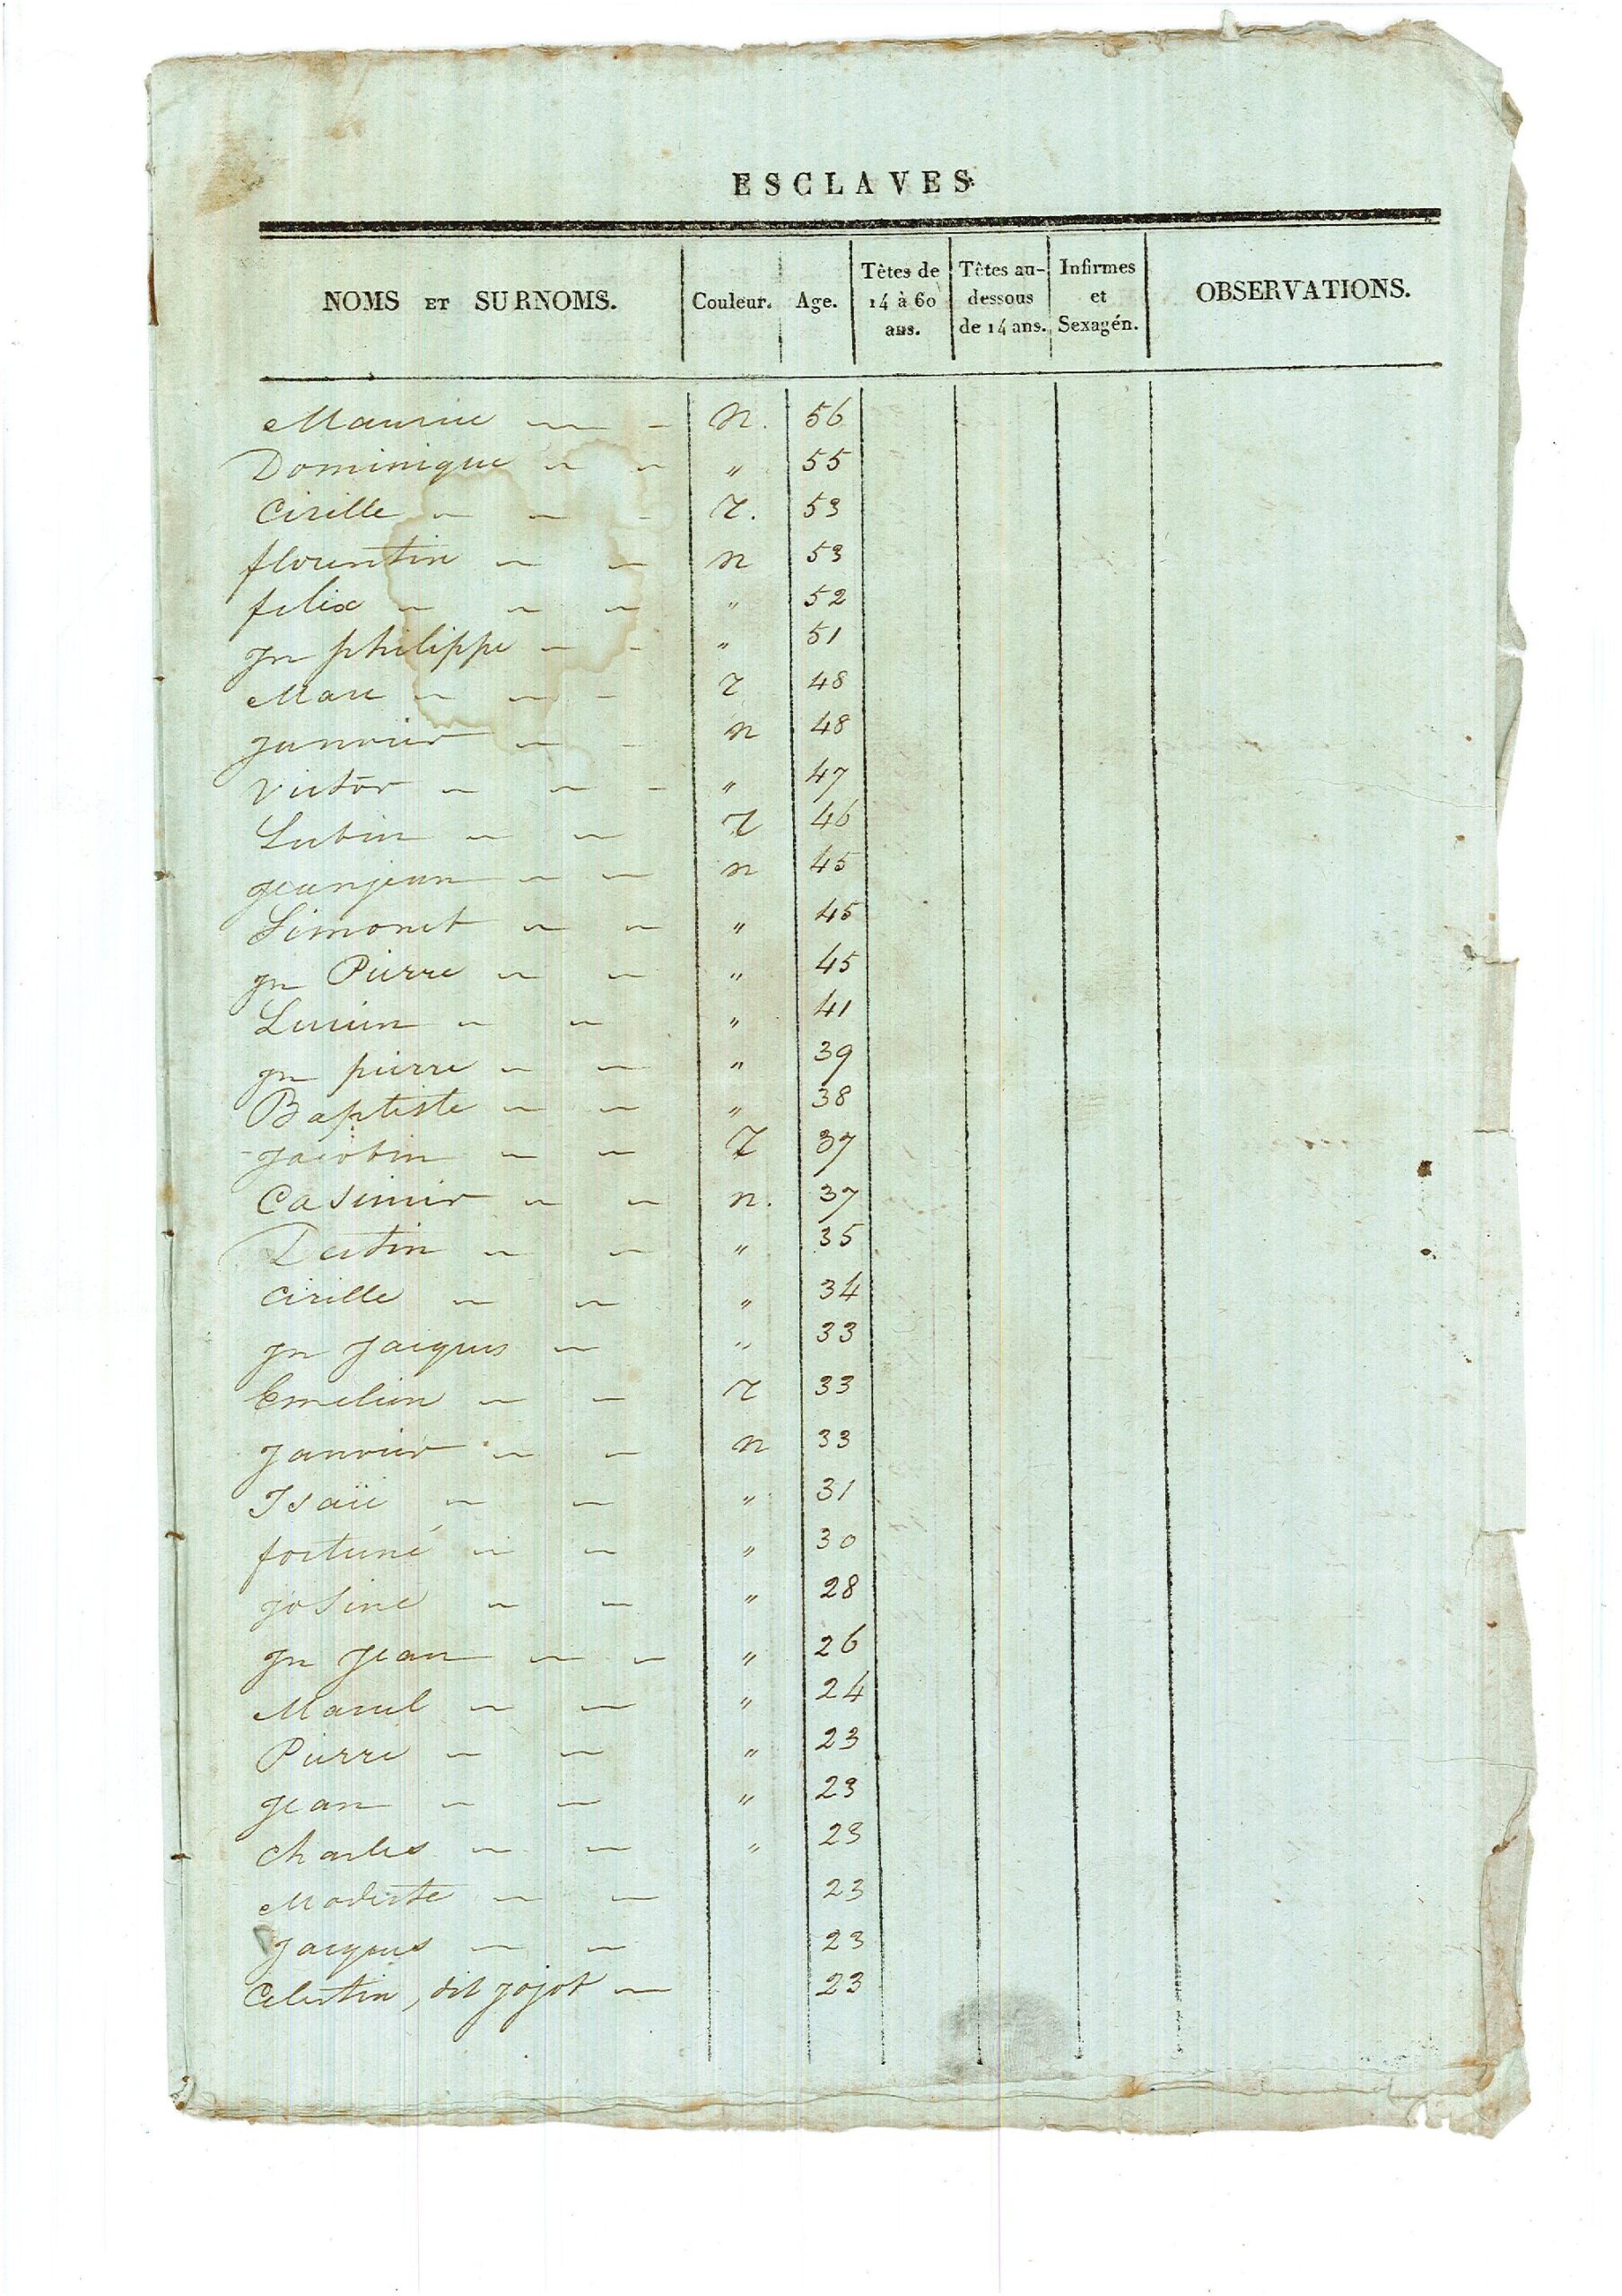 ESCLAVES
NOMS ET SURNOMS. Couleur. Age. Têtes de 14 à 60 ans. Têtes au-dessous de 14 ans. Infirmes et Sexagén. OBSERVATIONS.
Maurice n. 56
Dominique " 55
Cirille 53
florentin n 53
felix " 52
Jn philippe " 51
Marc 48
janvier n 48
Victor " 47
Lubin 46
jeanjean n 45
Simonet " 45
jn Pierre " 45
Lucien " 41
jn pierre " 39
Baptiste " 38
jacobin 37
Casimir n. 37
" 35
Cirille " 34
jn jacques " 33
Emelien 33
janvier n 33
Isaïe " 31
fortuné " 30
joSine " 28
jn jean " 26
Marcel " 24
Pierre " 23
jean " 23
Charles " 23
Modeste 23
jacques 23
Celestin, dit jojot 23